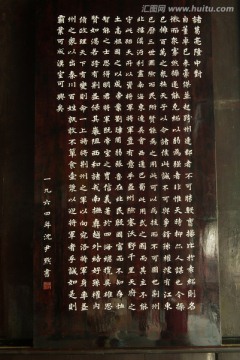 諸葛亮隆中對
自董卓已來豪傑並起跨州連郡者不可勝數曹操比於袁紹則名
微而眾寡然操遂能克紹以弱為強者非惟天時抑亦人謀也今操
已擁百萬之眾挾天子以令諸侯此誠不可與爭鋒孫權據有江東
已歷三世國險而民附賢能為之用此可以為援而不可圖也荊州北
據漢沔利盡南海東連吳會西通巴蜀此用武之國而其主不能
守此殆天所以資將軍將軍豈有意乎益州險塞沃野千里天府之
土高祖因之以成帝業劉璋闇弱張魯在北民殷國富而不知存恤
智能之士思得明君將軍既帝室之冑信義著於四海總攬英雄思
賢如渴若跨有荊益保其巖阻西和諸戎南撫夷越外結好孫權內
修政理天下有變則命一上將將荊州之軍以向宛洛將軍身率益
州之眾以出秦川百姓孰敢不簞食壺漿以迎將軍者乎誠如是則
霸業可成漢室可興矣
一九六四年沈尹默書